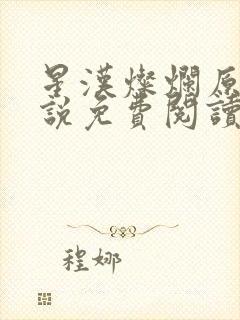 星漢燦爛原
說免費閱讀
程娜